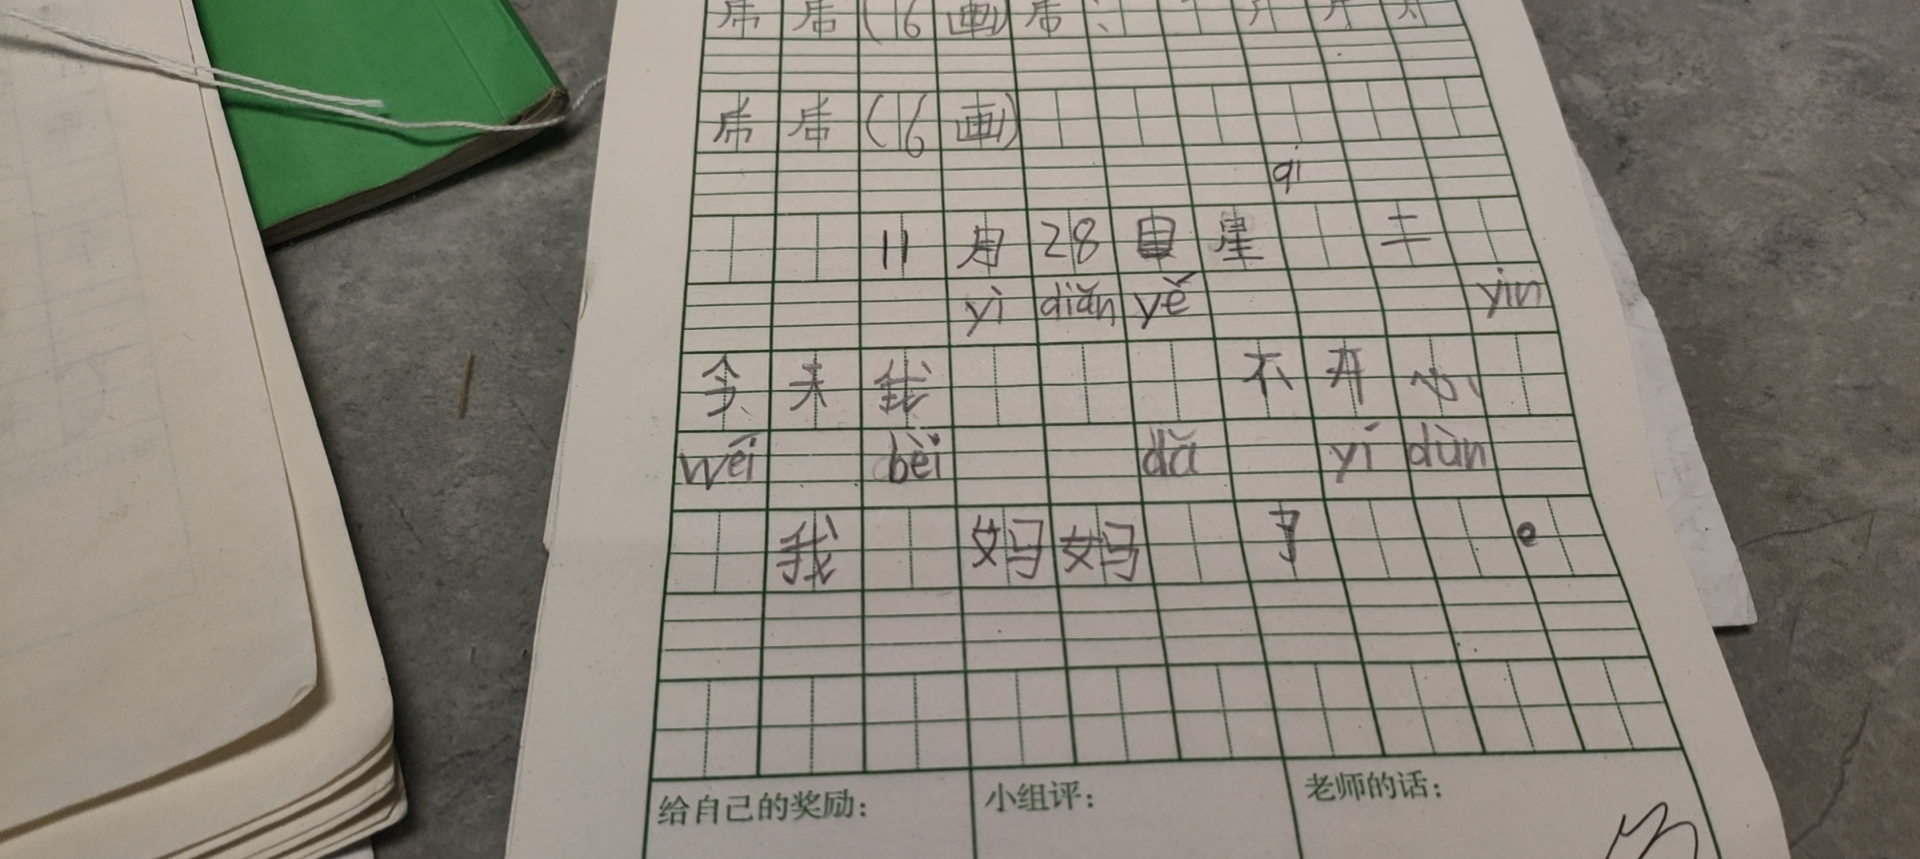 (16画)
(16画)
qi
11月28日星 二
yì diǎn yě yin
今天我 不开心
wēi bèi dǎ yí dùn
我 妈妈 了 。
给自己的奖励: 小组评: 老师的话: